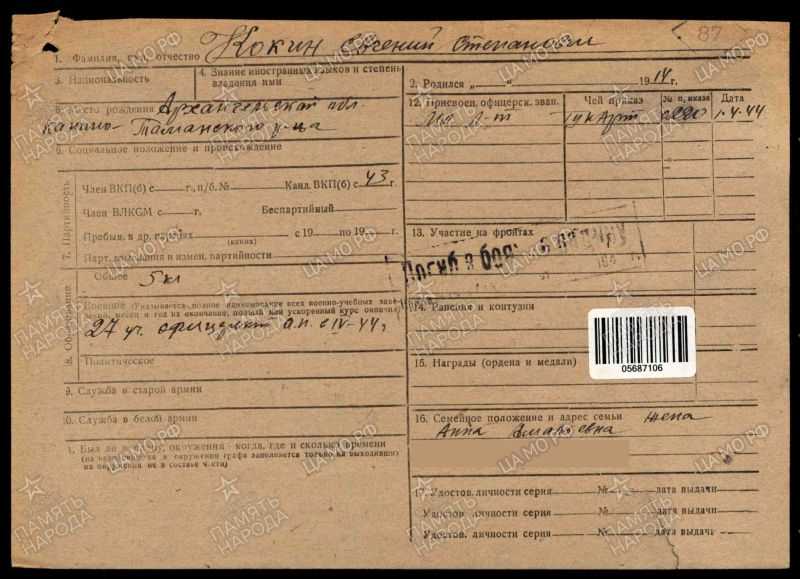 87
1. Фамилия, имя, отчество Кокин Евгений Степанович
3. Национальность
4. Знание иностранных языков и степень владения ими
2. Родился „ “ 1914 г.
5. Место рождения Архангельской обл.
Канино-Таманского р-на
6. Социальное положение и происхождение
12. Присвоен. офицерск. зван. Чей приказ № п, иказа Дата
Мл л-т 0220 1.4.44
7. Партийность
Член ВКП(б) с г., п/б. № Канд. ВКП(б) с 43 г.
Член ВЛКСМ с г. Беспартийный
Пребыв. в др. партиях с 19 по 19 г.
(каких)
Парт. взыскания и измен. партийности
13. Участие на фронтах
Погиб в боях за родину
8. Образование
Общее 5 кл
Военное (Указывается полное наименование всех военно-учебных заве-
дений, месяц и год их окончания, полный или ускоренный курс окончил)
27 уч. офицерск п. с IV-44,
Политическое
14. Ранения и контузии
05687106
15. Награды (ордена и медали)
9. Служба в старой армии
0. Служба в белой армии
16. Семейное положение и адрес семьи жена
Анна
1. Был ли в плену, окружении - когда, где и сколько времени
(на находившихся в окружении графа заполняется только на выходивших
из окружения не в составе части)
17. Удостов. личности серия № дата выдачи
Удостов. личности серия № дата выдачи
Удостов. личности серия № дата выдачи
ПАМЯТЬ НАРОДА
ЦА МО.РФ